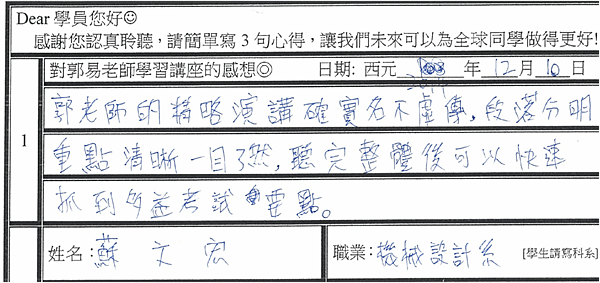 Dear 學員您好☺
感謝您認真聆聽，請簡單寫 3 句心得，讓我們未來可以為全球同學做得更好!
對郭易老師學習講座的感想◎ 日期: 西元 2011 年 12 月 10 日
1
郭老師的精略演講確實名不虛傳，段落分明
重點清晰一目了然，聽完整體後可以快速
抓到所並考試重點。
姓名：蘇文宏
職業：機械設計系 [學生請寫科系]